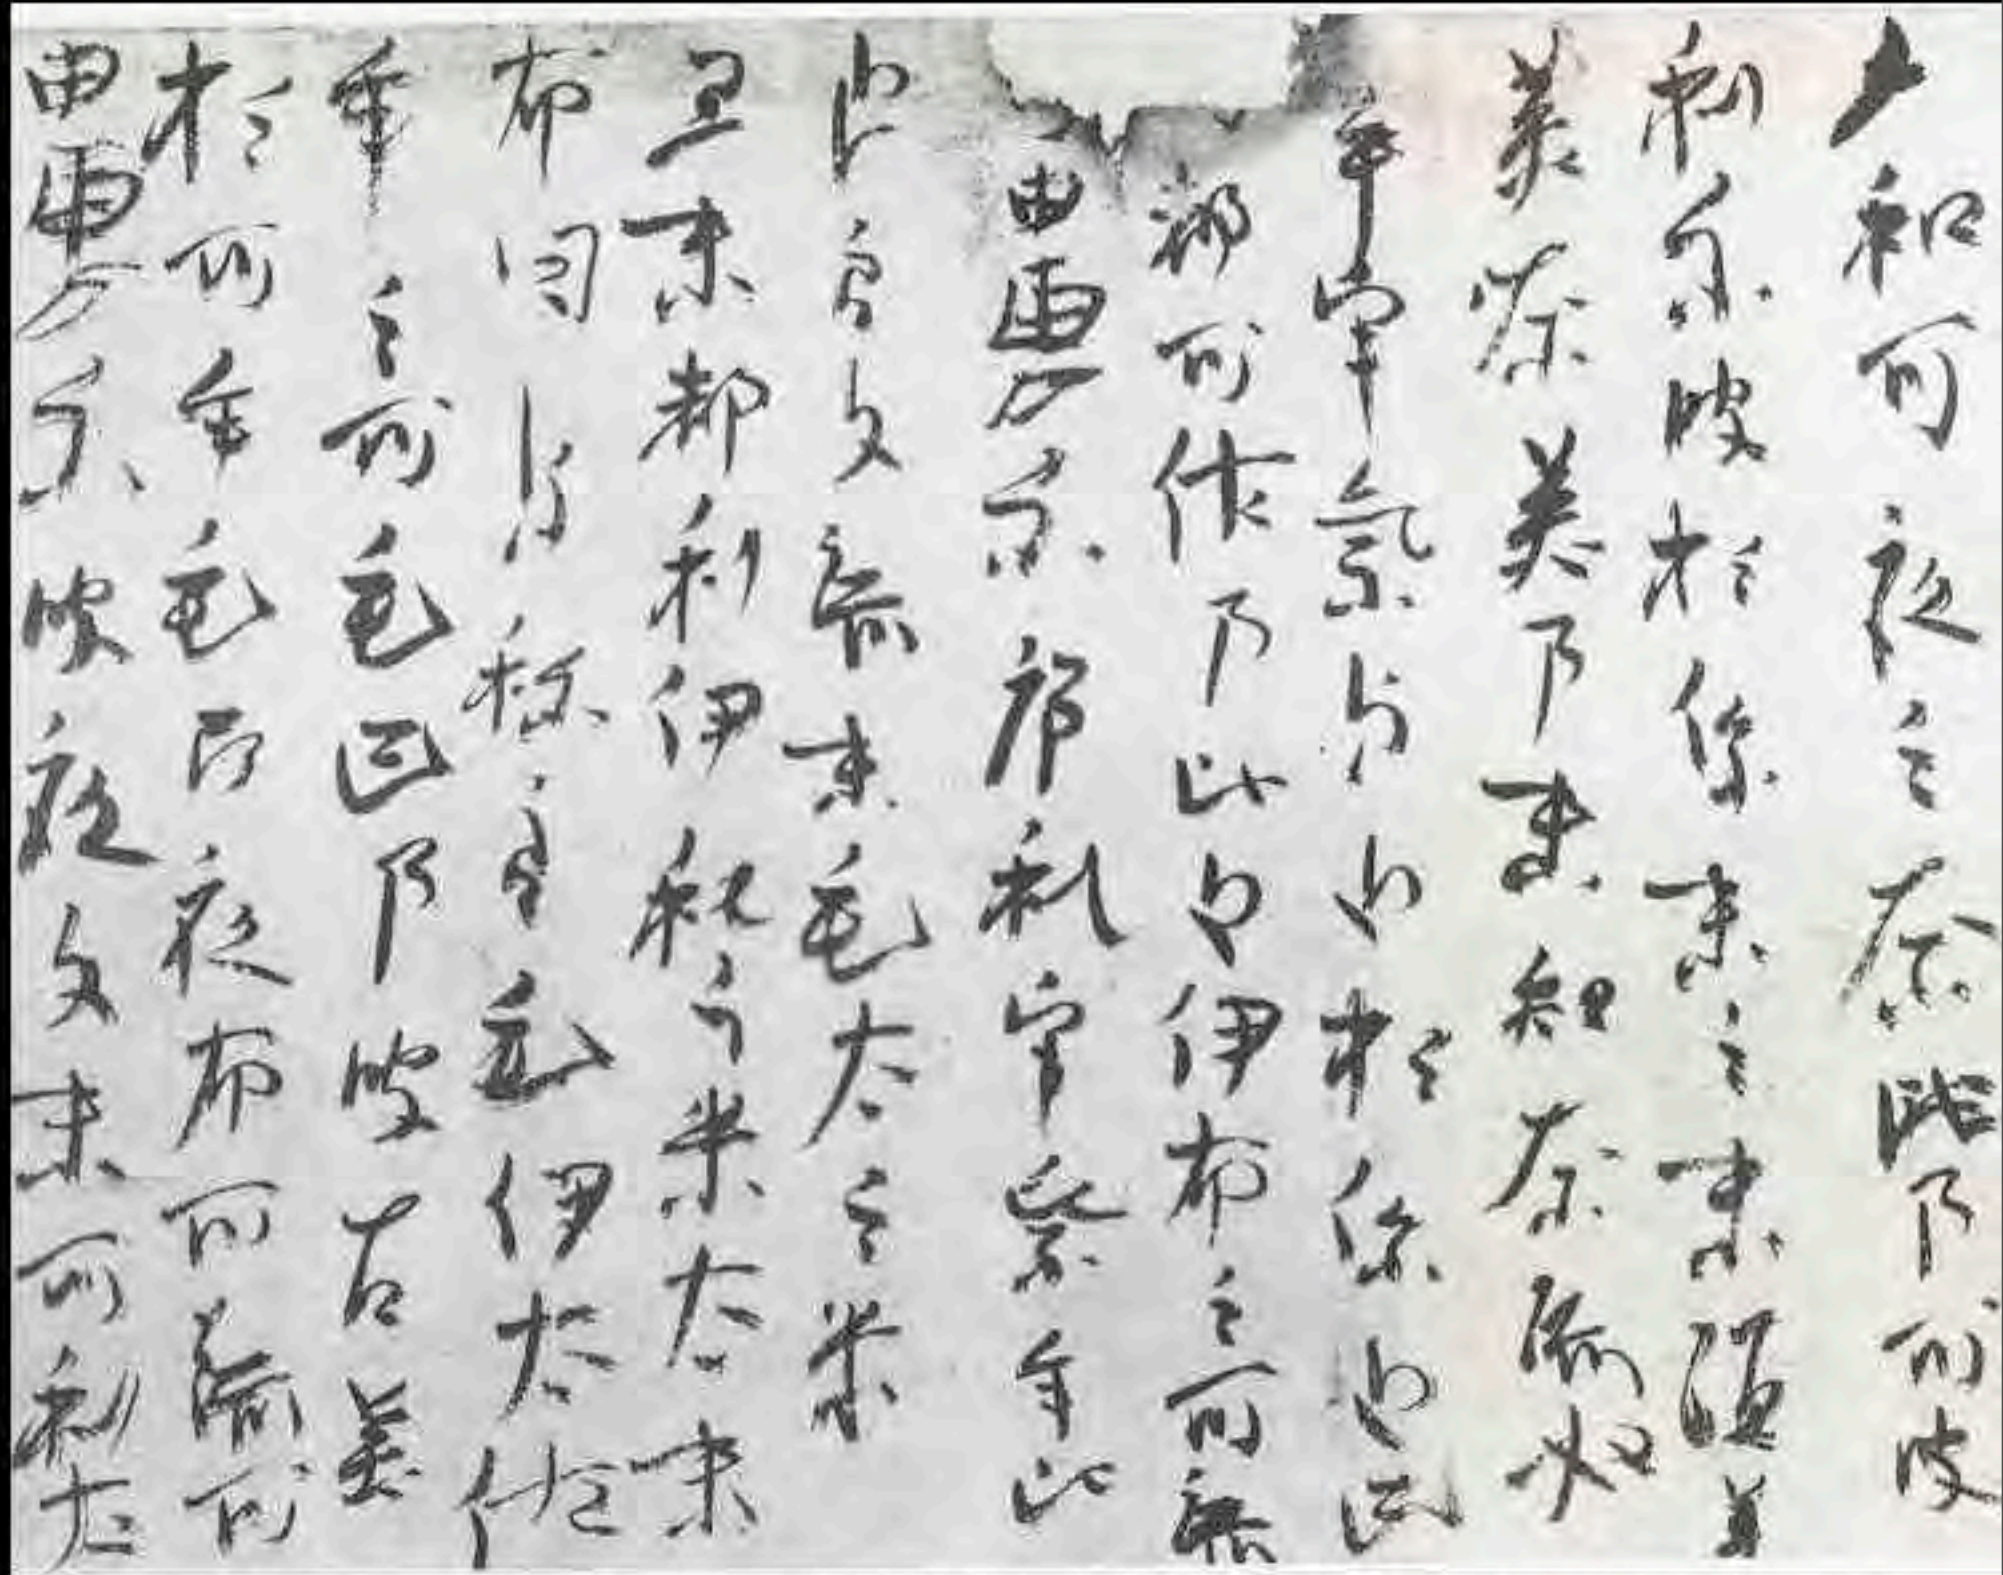 和可夜之奈比乃可波
利尓波於保末之末須美
美奈美乃末知奈流奴
乎宇氣与止於保止己
都可佐乃比止伊布之可流
由恵尓序礼宇氣牟比
止良久流末毛太之米
弖末都利伊礼之米太末
布日与祢良毛伊太佐
牟之可毛己乃波古美
於可牟毛阿夜布可流可
由恵尓波夜久末可利太